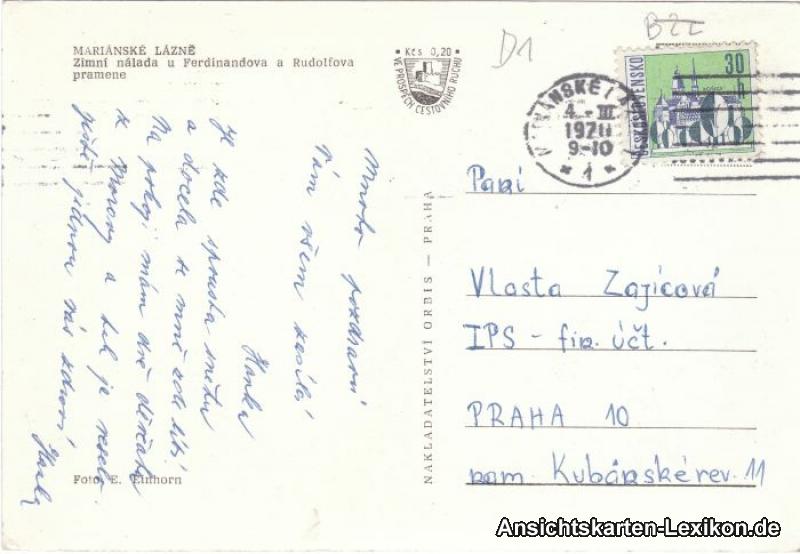 MARIÁNSKÉ LÁZNĚ
Zimní nálada u Ferdinandova a Rudolfova
pramene
Kčs 0,20
VE PROSPĚCH CESTOVNÍHO RUCHU
D1
BZZ
ČESKOSLOVENSKO
30
h
4.-III
9-10
1
Mnoho pozdravů
Vám všem zasílá
Hanka
Je zde spousta sněhu
a docela se mně zde líbí
Na pokoji mám dvě děvčata
z Moravy a tak je veselo
ještě jednou vás zdraví
Hanka
Foto E. Einhorn
NAKLADATELSTVÍ ORBIS — PRAHA
Paní
Vlasta Zajícová
IPS - fin. účt.
PRAHA 10
nám. Kubánské rev. 11
Ansichtskarten-Lexikon.de